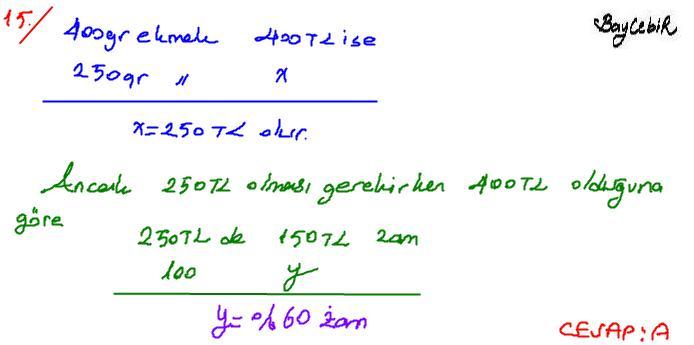 15./
BayCebiR
400gr ekmek 400TL ise
250gr " x
x=250TL olur.
Ancak 250TL olması gerekirken 400TL olduğuna
göre
250TL de 150TL zam
100 y
y=%60 zam
CEVAP:A